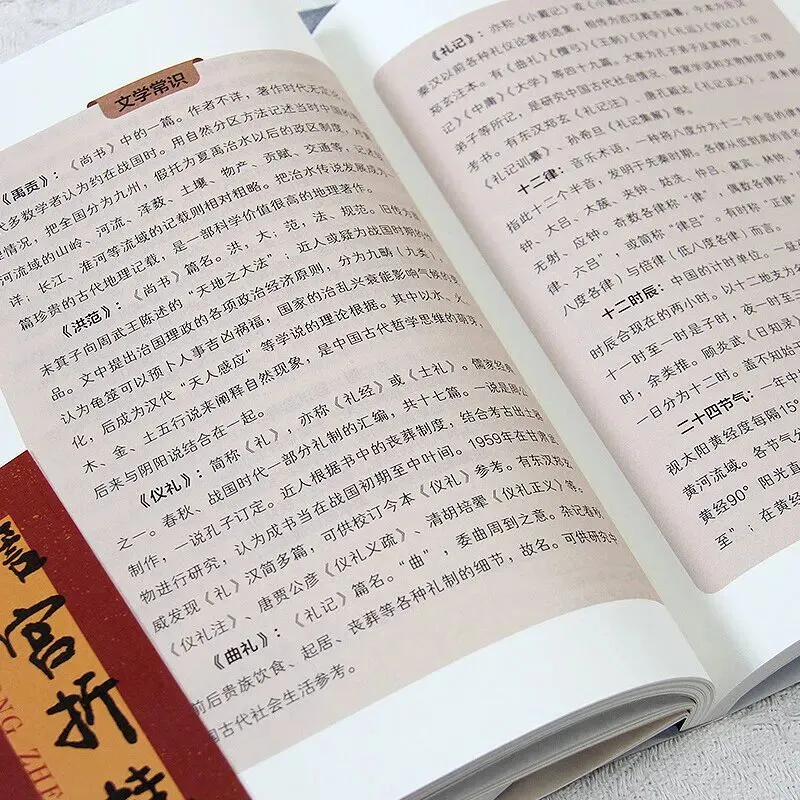 文学常识
《禹贡》：《尚书》中的一篇。作者不详，著作时代无定论
代多数学者认为约在战国时。用自然分区方法记述当时中国的
理情况，把全国分为九州，假托为夏禹治水以后的政区制度，对
河流域的山岭、河流、泽薮、土壤、物产、贡赋、交通等，记述
详；长江、淮河等流域的记载则相对粗略。把治水传说发展成为
篇珍贵的古代地理记载，是一部科学价值很高的地理著作。
《洪范》：《尚书》篇名。洪，大；范，法、规范。旧传为
末箕子向周武王陈述的“天地之大法”；近人或疑为战国时期的
品。文中提出治国理政的各项政治经济原则，分为九畴（九类），
认为龟筮可以预卜人事吉凶祸福，国家的治乱兴衰能影响气候的变
化，后成为汉代“天人感应”等学说的理论根据。其中以水、火、
木、金、土五行说来阐释自然现象，是中国古代哲学思维的萌芽，
后来与阴阳说结合在一起。
《仪礼》：简称《礼》，亦称《礼经》或《士礼》。儒家经典
之一。春秋、战国时代一部分礼制的汇编，共十七篇。一说是周公
制作，一说孔子订定。近人根据书中的丧葬制度，结合考古出土器
物进行研究，认为成书当在战国初期至中叶间。1959年在甘肃武
威发现《礼》汉简多篇，可供校订今本《仪礼》参考。有东汉郑玄
《仪礼注》、唐贾公彦《仪礼义疏》、清胡培翚《仪礼正义》等。
《曲礼》：《礼记》篇名。“曲”，委曲周到之意。杂记春秋
前后贵族饮食、起居、丧葬等各种礼制的细节，故名。可供研究中
国古代社会生活参考。
《礼记》：亦称《小戴记》或《小戴
秦汉以前各种礼仪论著的选集，相传为西汉戴圣编纂，今本为东汉
郑玄注本。有《曲礼》《檀弓》《王制》《月令》《礼运》《学记》《乐
记》《中庸》《大学》等四十九篇，大率为孔子弟子及其再传、三传
弟子等所记，是研究中国古代社会情况、儒家学说和文物制度的参
考书。有东汉郑玄《礼记注》、唐孔颖达《礼记正义》、清朱彬
《礼记训纂》、孙希旦《礼记集解》等。
十二律：音乐术语，一种将八度分为十二个半音的律
指此十二个半音，发明于先秦时期。各律从低到高的音名
钟、大吕、太簇、夹钟、姑洗、仲吕、蕤宾、林钟、
无射、应钟。奇数各律称“律”，偶数各律称
律、六吕”，或简称“律吕”。有时称“正律
八度各律）与倍律（低八度各律）而言。
十二时辰：中国的计时单位。一昼
时辰合现在的两小时。以十二地支为名
十一时至一时是子时，夜一时至三
时，余类推。顾炎武《日知录》
一日分为十二时。盖不知始于
二十四节气：一年中
视太阳黄经度每隔15°
黄河流域。各节气分
黄经90° 阳光直
至”；在黄经
宫
折
NG ZHE